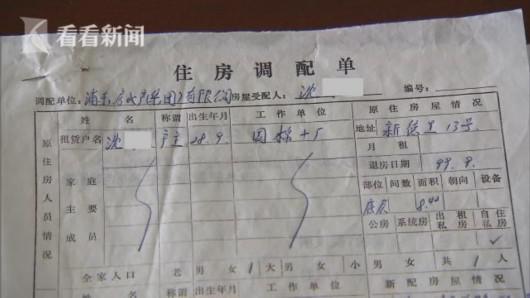 看看新闻
KNEWS
住房调配单
调配单位：浦东 房地产集团有限公司 房屋受配人：沈 编号：
原住房人员情况 姓名 称谓 出生年月 工作单位 原住房屋情况
租赁户名 沈 户主 28.9. 地址 13号
月租
家庭主要成员 退房日期 99.9.
部位 间数 面积 朝向 设备
公房 系统房 出租私房 自住私房
✓
全家人口 老 男 女 1 大 男 女 小 男 女 共 1 人
称谓 出生年月 工作单位 新配房屋情况